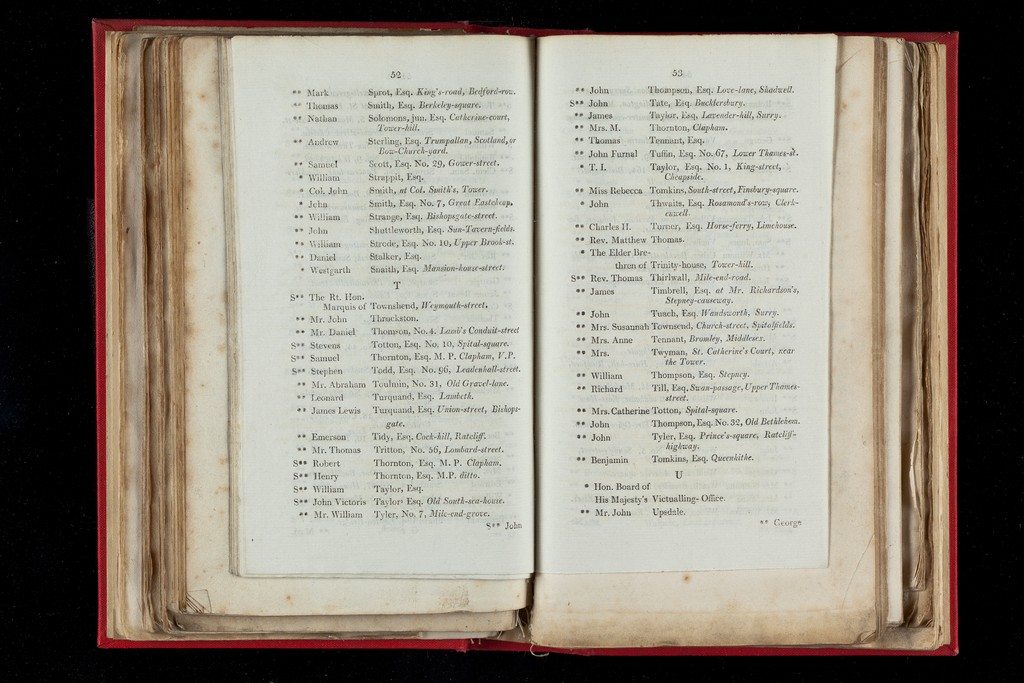 52
** Mark Sprot, Esq. King's-road, Bedford-row.
** Thomas Smith, Esq. Berkeley-square.
** Nathan Solomons, jun. Esq. Catherine-court,
Tower-hill.
** Andrew Sterling, Esq. Trumpallan, Scotland, or
Bow-Church-yard.
** Samuel Scott, Esq. No. 29, Gower-street.
* William Strappit, Esq.
* Col. John Smith, at Col. Smith's, Tower.
* John Smith, Esq. No. 7, Great Eastcheap.
** William Strange, Esq. Bishopsgate-street.
** John Shuttleworth, Esq. Sun-Tavern-fields.
** William Strode, Esq. No. 10, Upper Brook-st.
** Daniel Stalker, Esq.
* Westgarth Snaith, Esq. Mansion-house-street.
T
S** The Rt. Hon.
Marquis of Townshend, Weymouth-street.
** Mr. John Throckston.
** Mr. Daniel Thomson, No. 4. Lamb's Conduit-street
S** Stevens Totton, Esq. No. 10, Spital-square.
S** Samuel Thornton, Esq. M. P. Clapham, V.P.
S** Stephen Todd, Esq. No. 96, Leadenhall-street.
** Mr. Abraham Toulmin, No. 31, Old Gravel-lane.
** Leonard Turquand, Esq. Lambeth.
** James Lewis Turquand, Esq. Union-street, Bishops-
gate.
** Emerson Tidy, Esq. Cock-hill, Ratcliff.
** Mr. Thomas Tritton, No. 56, Lombard-street.
S** Robert Thornton, Esq. M. P. Clapham.
S** Henry Thornton, Esq. M.P. ditto.
S** William Taylor, Esq.
S** John Victoris Taylor, Esq. Old South-sea-house.
** Mr. William Tyler, No. 7, Mile-end-grove.
S** John
53
** John Thompson, Esq. Love-lane, Shadwell.
S** John Tate, Esq. Bucklersbury.
** James Taylor, Esq, Lavender-hill, Surry.
** Mrs. M. Thornton, Clapham.
** Thomas Tennant, Esq.
** John Furnal Tuffin, Esq. No. 67, Lower Thames-st.
* T. I. Taylor, Esq. No. 1, King-street,
Cheapside.
** Miss Rebecca Tomkins, South-street, Finsbury-square.
* John Thwaits, Esq. Rosamond's-row, Clerk-
enwell.
** Charles H. Turner, Esq. Horse-ferry, Limehouse.
** Rev. Matthew Thomas.
* The Elder Bre-
thren of Trinity-house, Tower-hill.
S** Rev. Thomas Thirlwall, Mile-end-road.
** James Timbrell, Esq. at Mr. Richardson's,
Stepney-causeway.
** John Tuach, Esq. Wandsworth, Surry.
** Mrs. Susannah Townsend, Church-street, Spitalfields.
** Mrs. Anne Tennant, Bromley, Middlesex.
** Mrs. Twyman, St. Catherine's Court, near
the Tower.
** William Thompson, Esq. Stepney.
** Richard Till, Esq. Swan-passage, Upper Thames-
street.
** Mrs. Catherine Totton, Spital-square.
** John Thompson, Esq. No. 32, Old Bethlehem.
** John Tyler, Esq. Prince's-square, Ratcliff-
highway.
** Benjamin Tomkins, Esq. Queenhithe.
U
* Hon. Board of
His Majesty's Victualling-Office.
** Mr. John Upsdale.
** George